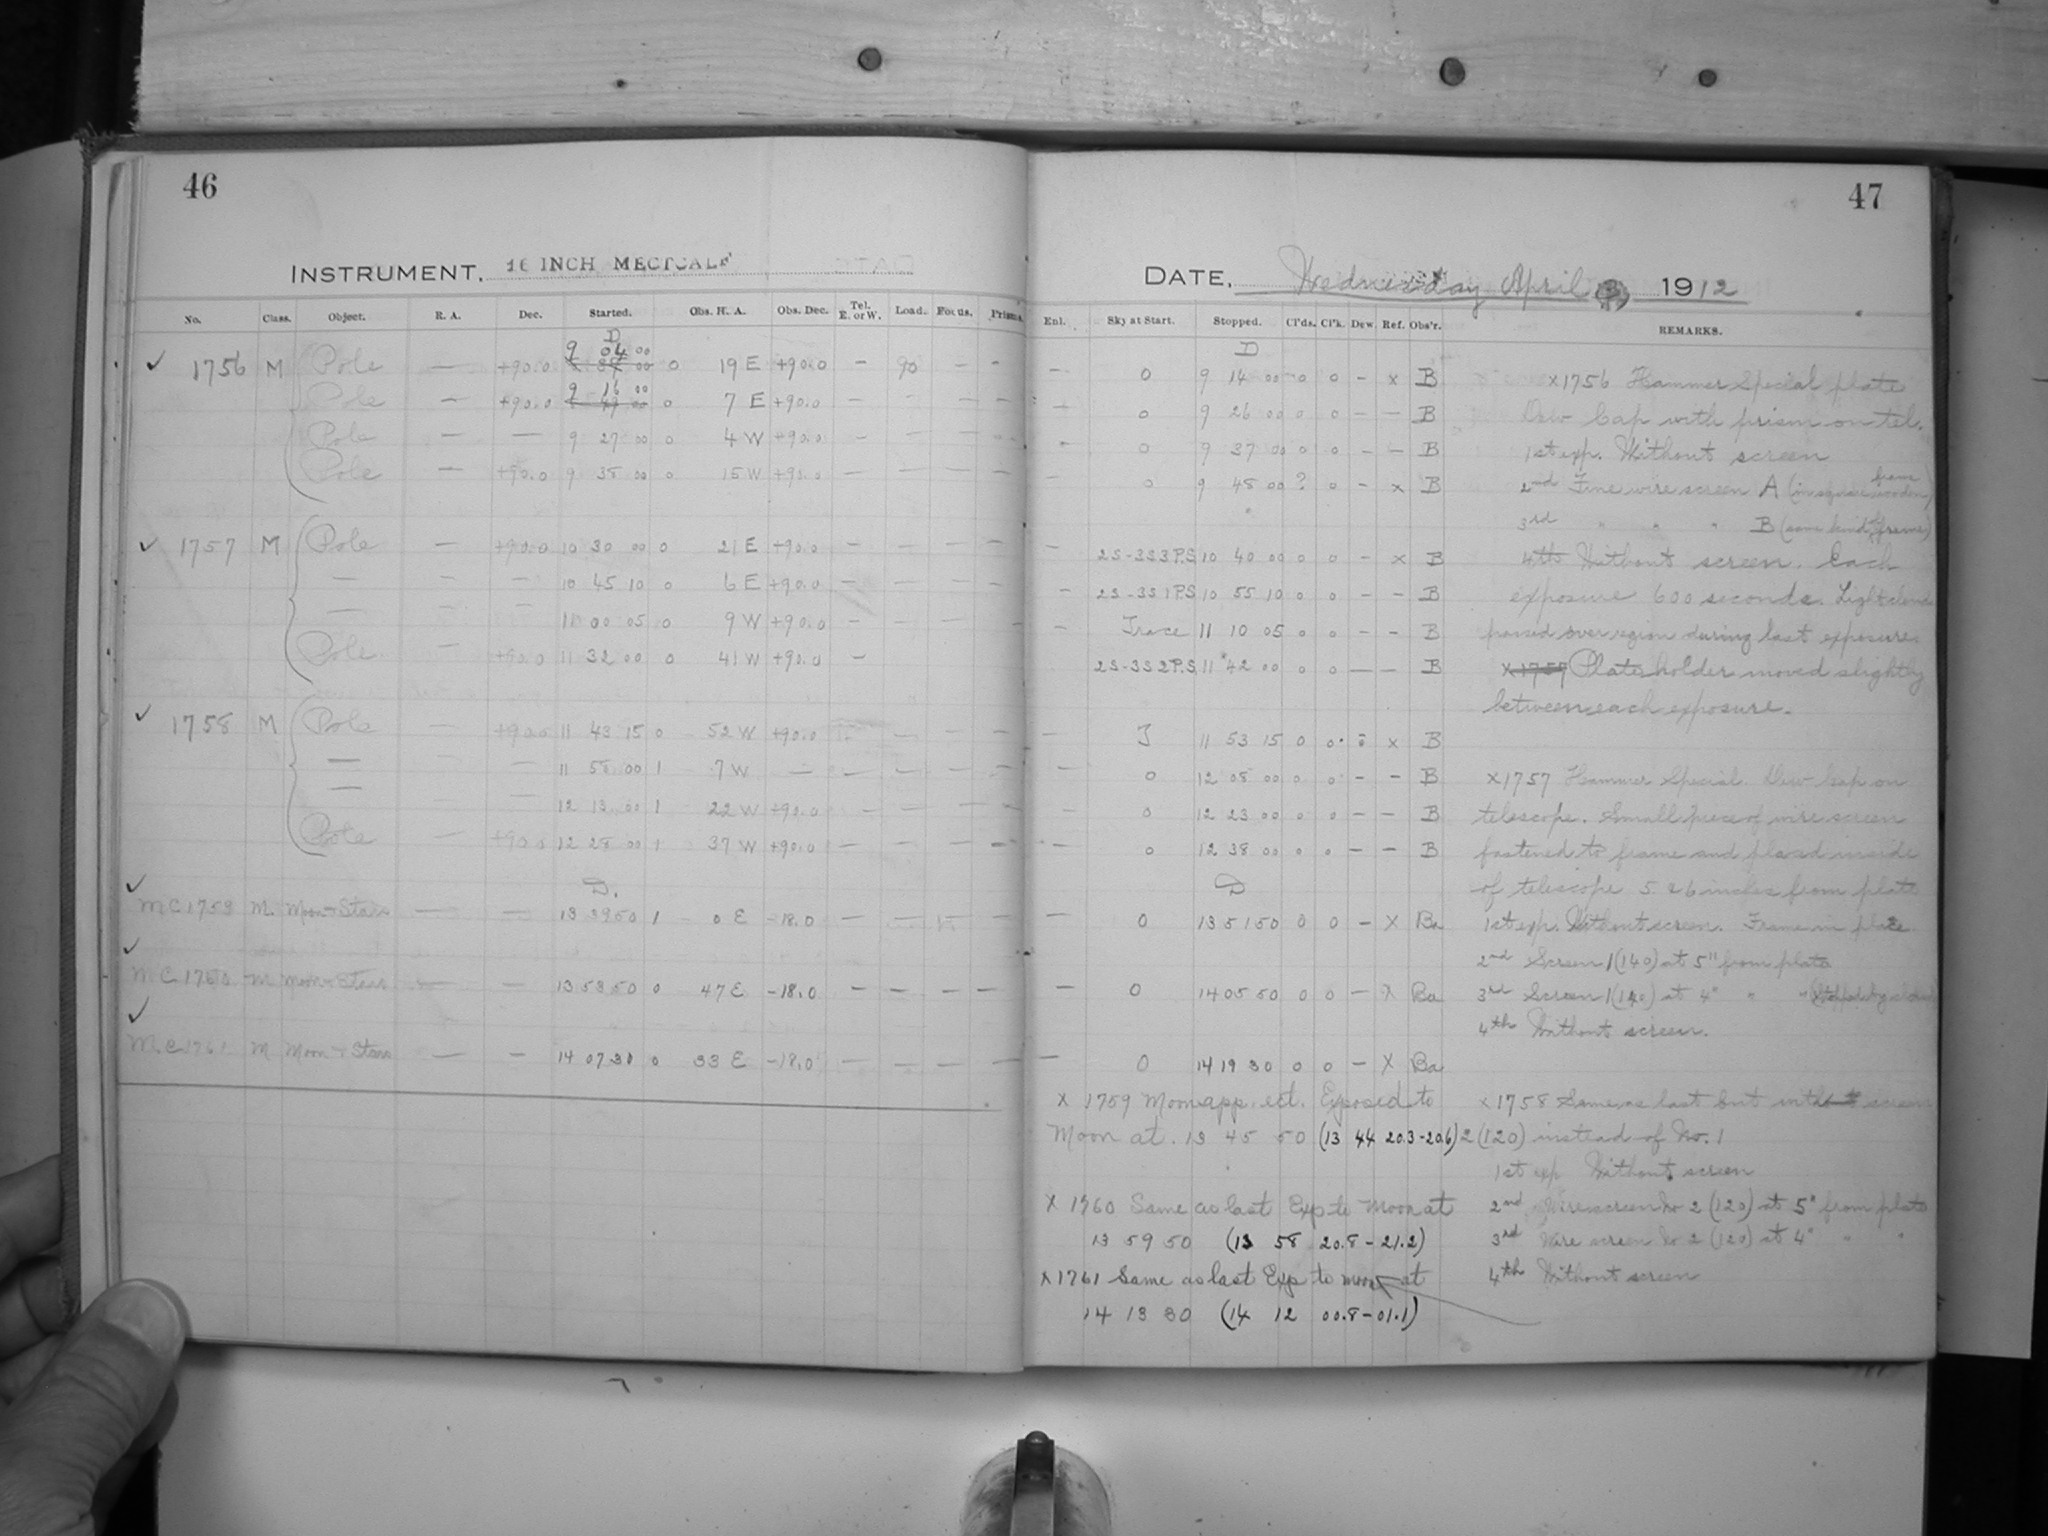 46
INSTRUMENT. 16 INCH METCALF
No. Class. Object. R. A. Dec. Started. Obs. H. A. Obs. Dec. Tel. E. or W. Load. Focus. Prisms.
D
9 04 00
✓ 1756 M Pole — +90.0 0 19 E +90.0 — 90 — —
9 16 00
Pole — +90.0 0 7 E +90.0 — — — —
Pole — — 9 27 00 0 4 W +90.0 — — —
Pole — +90.0 9 38 00 0 15 W +90.0 — — — —
✓ 1757 M Pole — +90.0 10 30 00 0 21 E +90.0 — — — —
— — — 10 45 10 0 6 E +90.0 — — — —
— — — 11 00 05 0 9 W +90.0 — — — —
Pole — +90.0 11 32 00 0 41 W +90.0 —
✓ 1758 M Pole — +90.0 11 43 15 0 52 W +90.0 — — —
— — — 11 58 00 1 7 W — — — — —
— — — 12 13 00 1 22 W +90.0 — — — —
Pole — +90.0 12 28 00 1 37 W +90.0 — — — —
D.
✓ MC 1759 M. Moon & Stars — — 13 39 50 1 0 E -18.0 — — —
✓ MC 1760 M Moon & Stars — — 13 53 50 0 47 E -18.0 — — — —
✓ M.C 1761 M Moon & Stars — — 14 07 30 0 33 E -18.0 — — — —
47
DATE. Wednesday April 3, 1912
Enl. Sky at Start. Stopped. Cl'ds. Cl'k. Dew. Ref. Obs'r. REMARKS.
D
— 0 9 14 00 0 0 — x B
— 0 9 26 00 0 0 — — B
0 9 37 00 0 0 — — B
— 0 9 48 00 ? 0 — x B
— 2S-3S3P.S. 10 40 00 0 0 — x B
— 2S-3S1P.S. 10 55 10 0 0 — — B
— Trace 11 10 05 0 0 — — B
2S-3S2P.S. 11 42 00 0 0 — — B
— T 11 53 15 0 0 x B
— 0 12 08 00 0 0 — — B
— 0 12 23 00 0 0 — — B
— 0 12 38 00 0 0 — — B
D
— 0 13 51 50 0 0 — X Ba
— 0 14 05 50 0 0 — X Ba
— 0 14 19 30 0 0 — X Ba
x 1759 Moon app. ect. Exposed to
Moon at. 13 45 50 (13 44 20.3-20.6)
X 1760 Same as last Exp to Moon at
13 59 50 (13 58 20.8-21.2)
X 1761 Same as last Exp to moon at
14 13 30 (14 12 00.8-01.1)
x1756 Hammer Special plate
Dew Cap with prism on tel.
1st exp. Without screen
2nd Fine wire screen A (in square wooden frame)
3rd " " " B (same kind of frame)
4th Without screen. Each
exposure 600 seconds. Light clouds
passed over region during last exposure.
x 1757 Plateholder moved slightly
between each exposure.
x1757 Hammer Special. Dew Cap on
telescope. Small piece of wire screen
fastened to frame and placed inside
of telescope 5 & 6 inches from plate
1st exp. Without screen. Frame in place.
2nd Screen 1 (140) at 5" from plate
3rd Screen 1 (140) at 4" " "
4th Without screen.
x 1758 Same as last but with screen
2 (120) instead of No. 1
1st exp Without screen
2nd Wire screen No 2 (120) at 5" from plate
3rd Wire screen No 2 (120) at 4" " "
4th Without screen